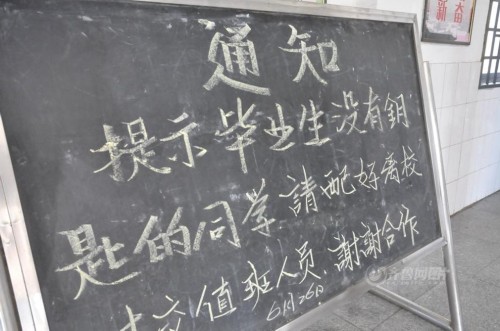 通知
提示毕业生没有钥
匙的同学請配好离校
交值班人员、謝謝合作
6月26日
齐鲁网图
新奋